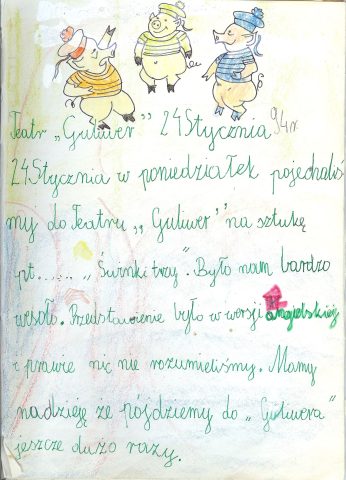 Teatr „Guliwer” 24 Stycznia 94r.
24 Stycznia w poniedziałek pojechaliś
my do Teatru „Guliwer” na sztukę
pt...... „Świnki trzy”. Było nam bardzo
wesoło. Przedstawienie było w wersji angielskiej
i prawie nic nie rozumieliśmy. Mamy
nadzieję że pójdziemy do „Guliwera”
jeszcze dużo razy.